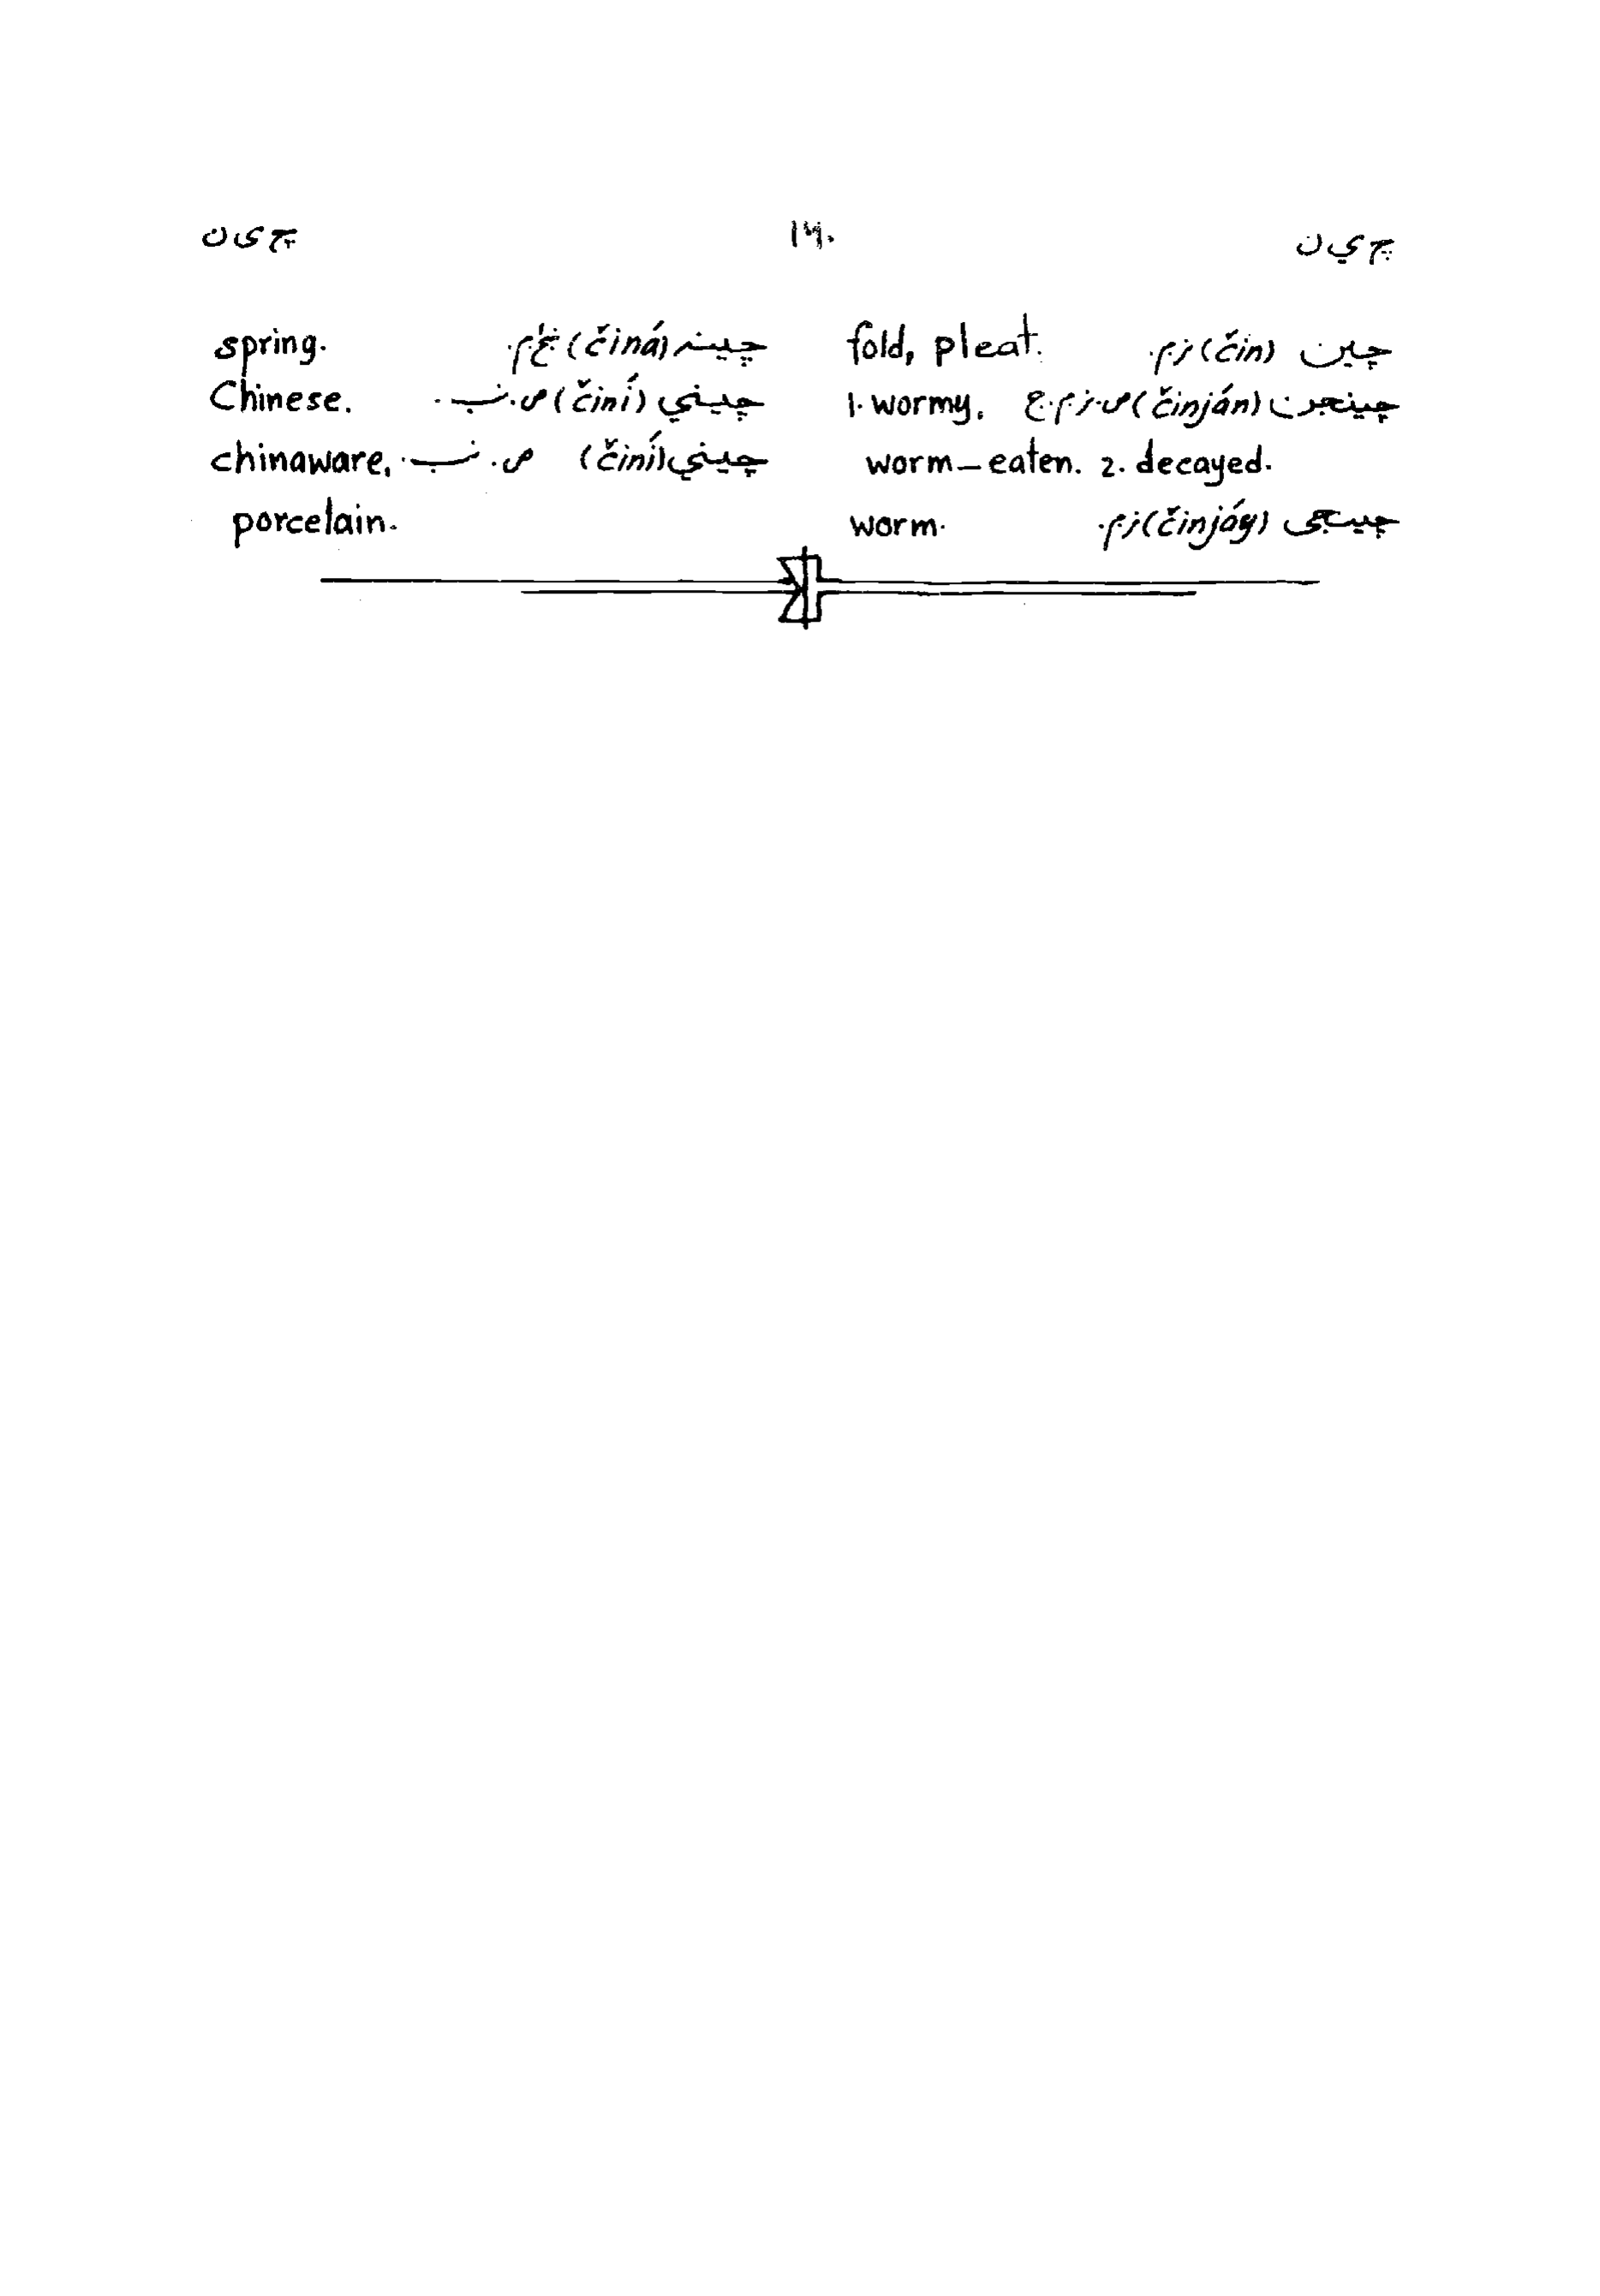 چ ي ن ۱۶۰ چ ی ن
چین (čin) ز.م. fold, pleat.
چینجن (činján) ص.ز.م.ج 1. wormy,
worm-eaten. 2. decayed.
چینجی (činjáy) ز.م. worm.
چینه (činá) .م. spring.
چیني (činí) ص. ــب. Chinese.
چیني (činí) ص. ــب. chinaware,
porcelain.